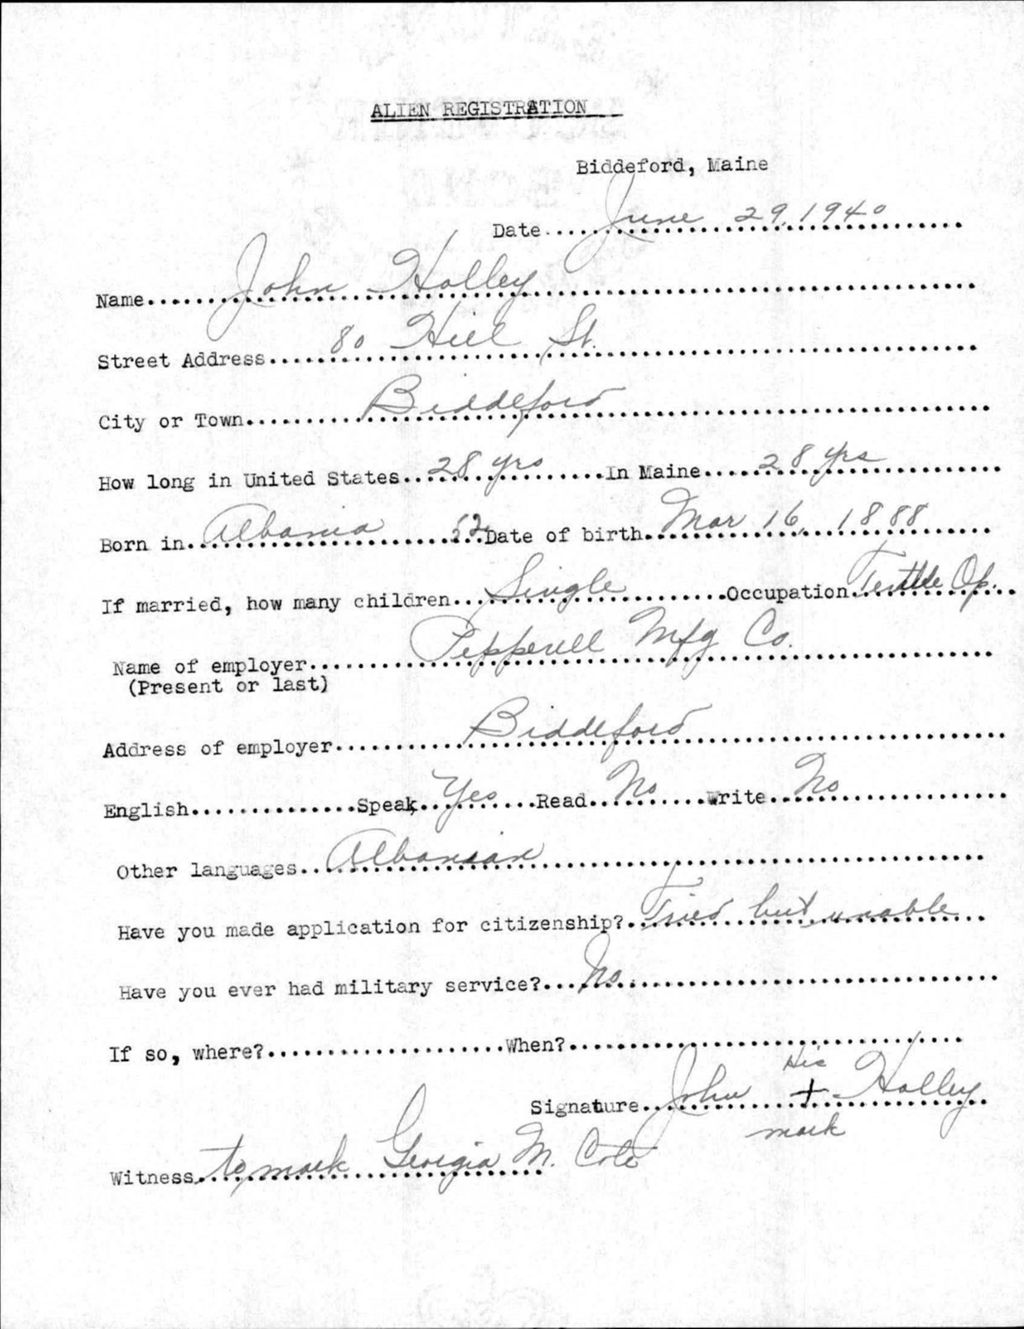 ALIEN REGISTRATION
Biddeford, Maine
Date June 29, 1940
Name John Holley
Street Address 80 Hill St.
City or Town Biddeford
How long in United States 28 yrs In Maine 28 yrs
Born in Albania 52 Date of birth Mar 16, 1888
If married, how many children Single Occupation Textile Op.
Name of employer Pepperell Mfg Co.
(Present or last)
Address of employer Biddeford
English Speak Yes Read No Write No
Other languages Albanian
Have you made application for citizenship? Tried but unable
Have you ever had military service? No
If so, where? When?
His
Signature John + Holley
mark
Witness to mark Georgia M. Cote